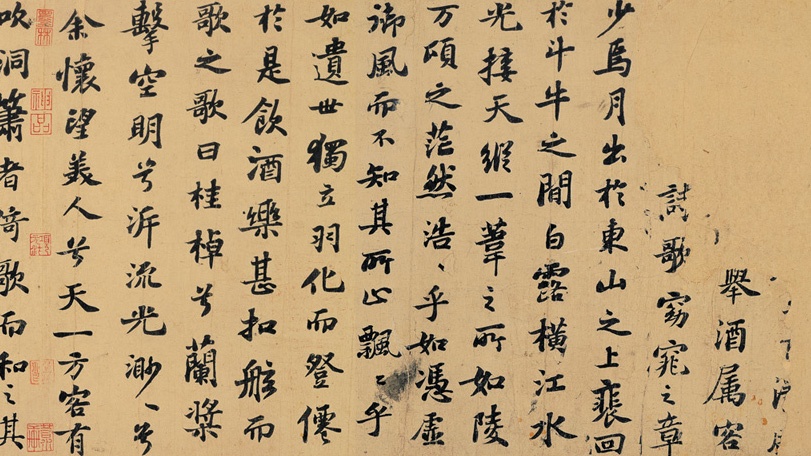 舉酒属客
詩歌窈窕之章
少焉月出於東山之上裴回
於斗牛之間白露橫江水
光接天縱一葦之所如陵
万頃之茫然浩〻乎如憑虛
御風而不知其所止飄〻乎
如遺世獨立羽化而登僊
於是飲酒樂甚扣舷而
歌之歌曰桂棹兮蘭槳
擊空明兮泝流光渺〻兮
余懷望美人兮天一方客有
吹洞簫者倚歌而和之其